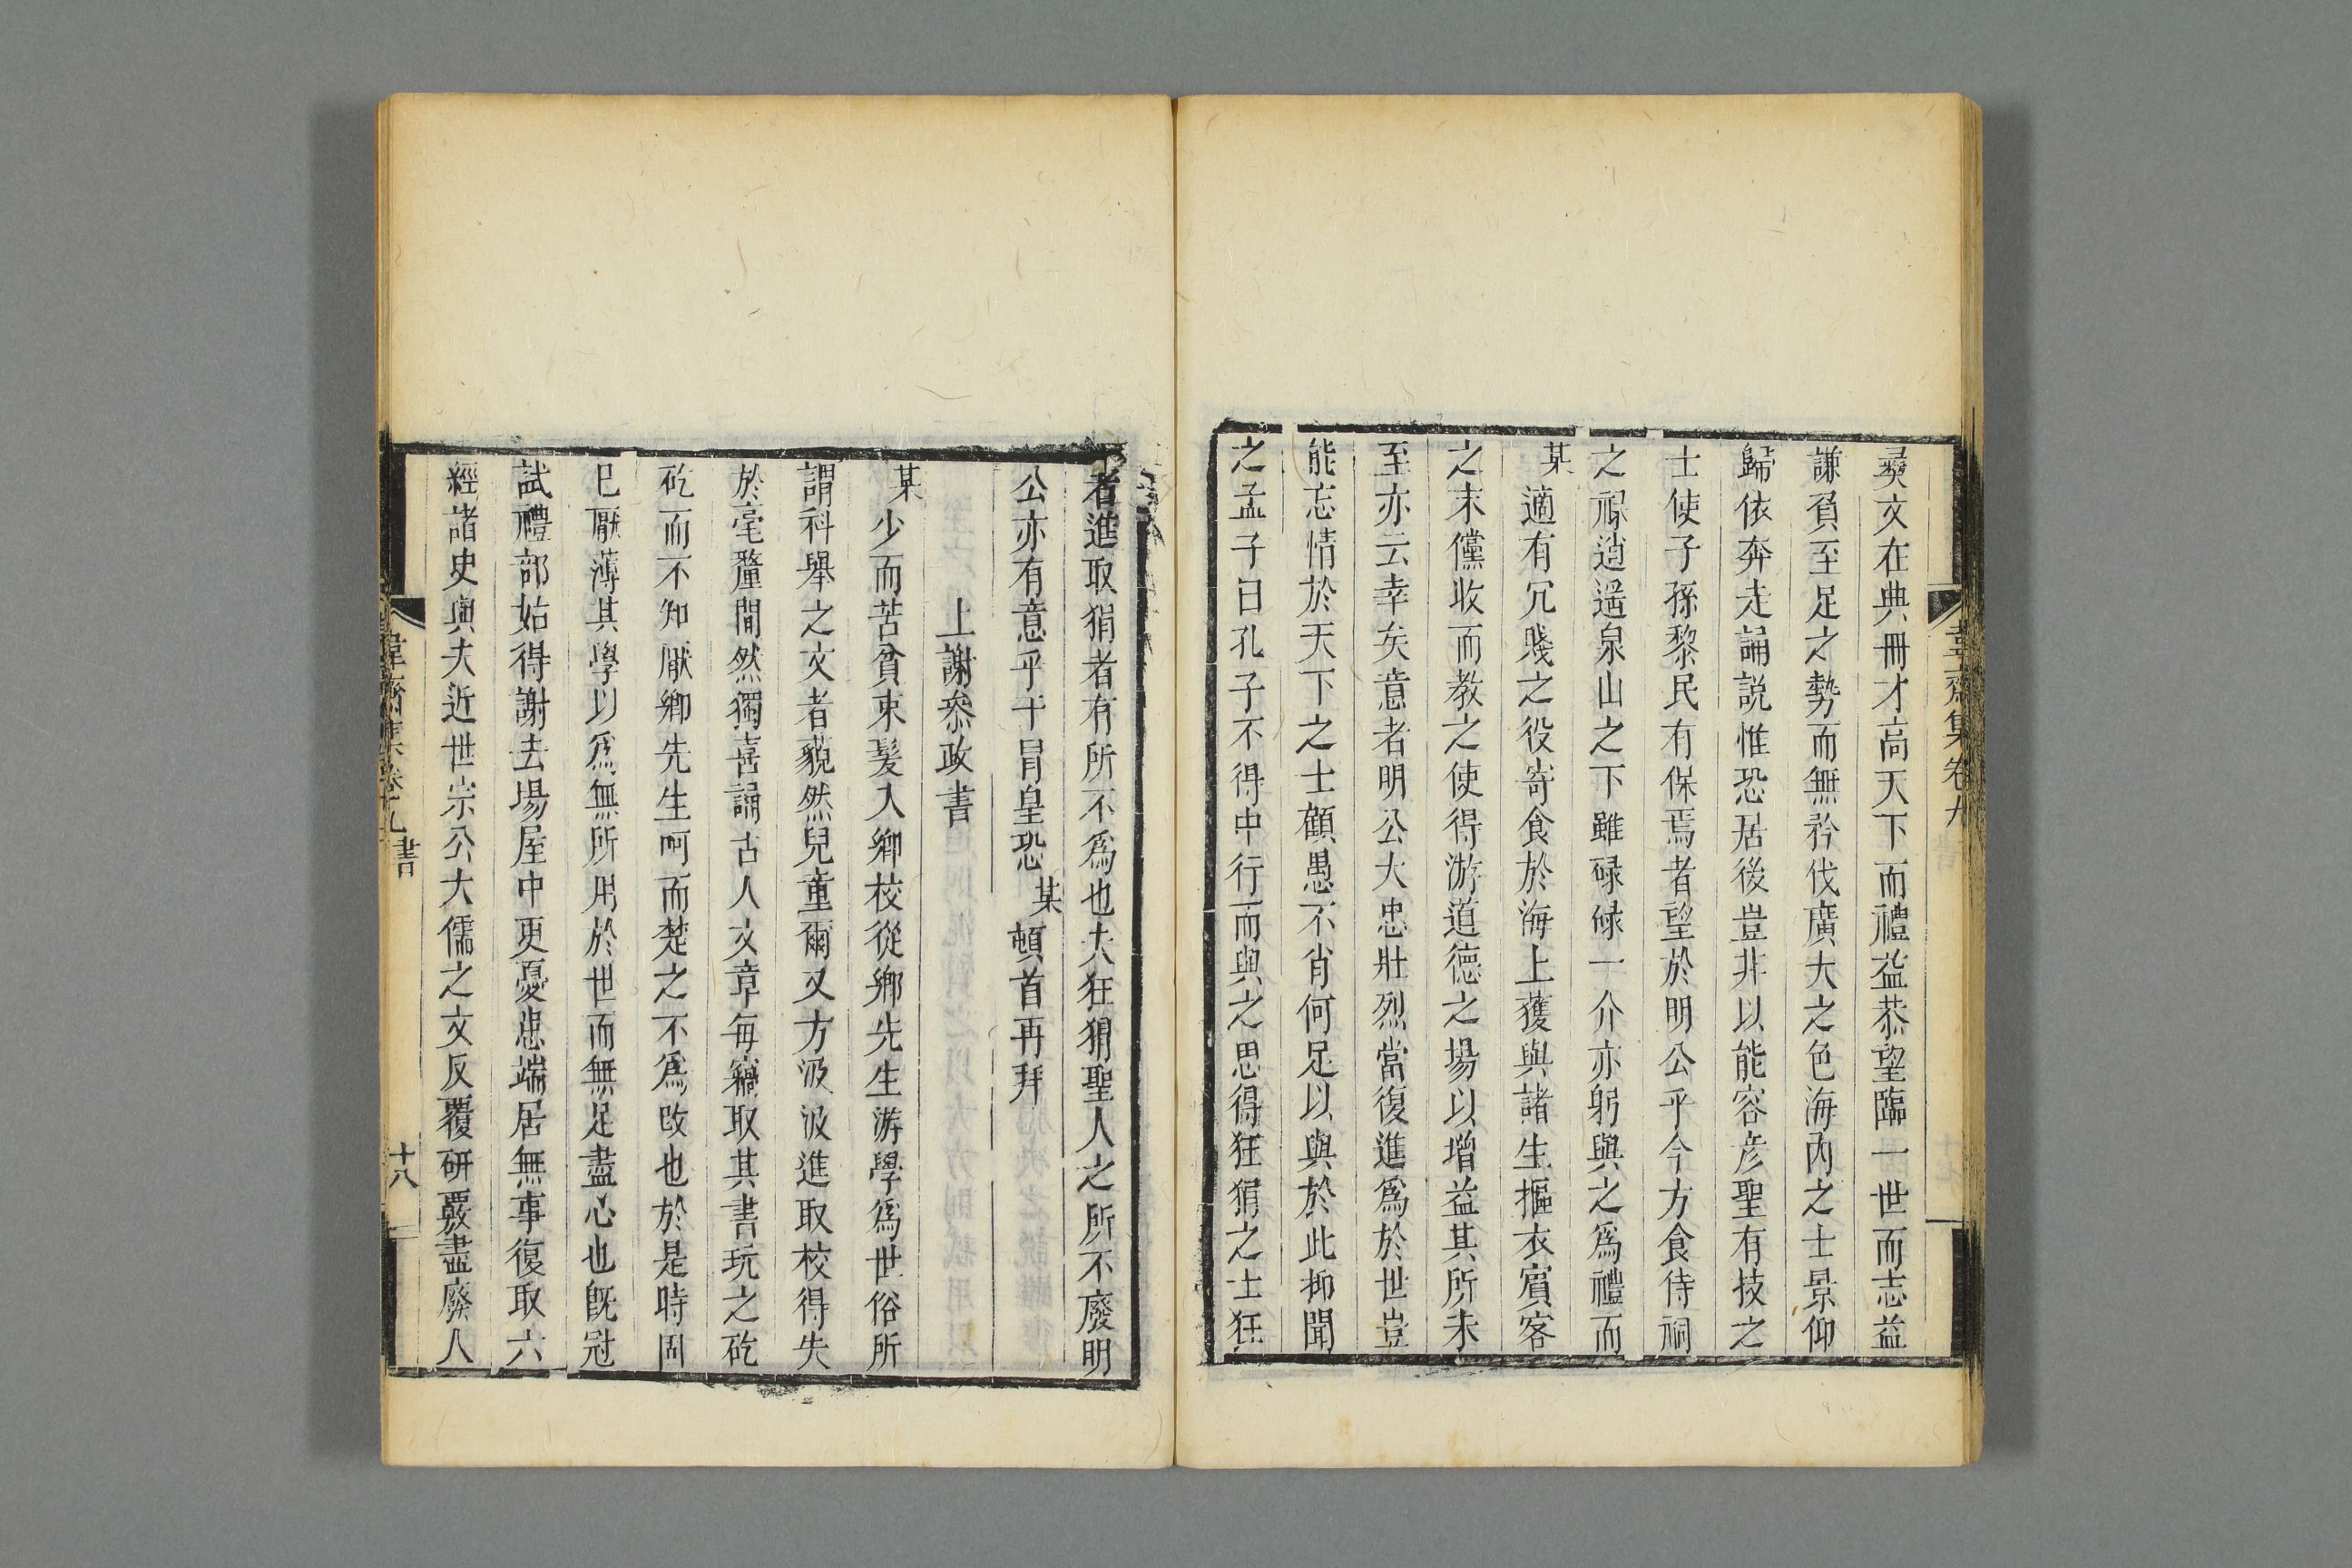 韋齋集卷九
彝文在典冊才高天下而禮益恭望臨一世而志益
謙負至足之勢而無矜伐廣大之色海內之士景仰
歸依奔走誦説惟恐居後豈非以能容彥聖有技之
士使子孫黎民有保焉者望於明公乎今方食侍祠
之祿逍遥泉山之下雖碌碌一介亦躬與之為禮而
某適有冗賤之役寄食於海上獲與諸生摳衣賓客
之末儻收而教之使得游道德之場以增益其所未
至亦云幸矣意者明公大忠壯烈當復進為於世豈
能忘情於天下之士顧愚不肖何足以與於此抑聞
之孟子曰孔子不得中行而與之思得狂狷之士狂
者進取狷者有所不為也夫狂狷聖人之所不廢明
公亦有意乎干冒皇恐某頓首再拜
上謝叅政書
某少而苦貧束髪入鄉校從鄉先生游學為世俗所
謂科舉之文者藐然兒童爾又方汲汲進取校得失
於毫釐間然獨喜誦古人文章每竊取其書玩之矻
矻而不知厭鄉先生呵而楚之不為改也於是時固
已厭薄其學以為無所用於世而無足盡心也旣冠
試禮部始得謝去場屋中更憂患端居無事復取六
經諸史與夫近世宗公大儒之文反覆研覈盡廢人
韋齋集卷九 書
十八